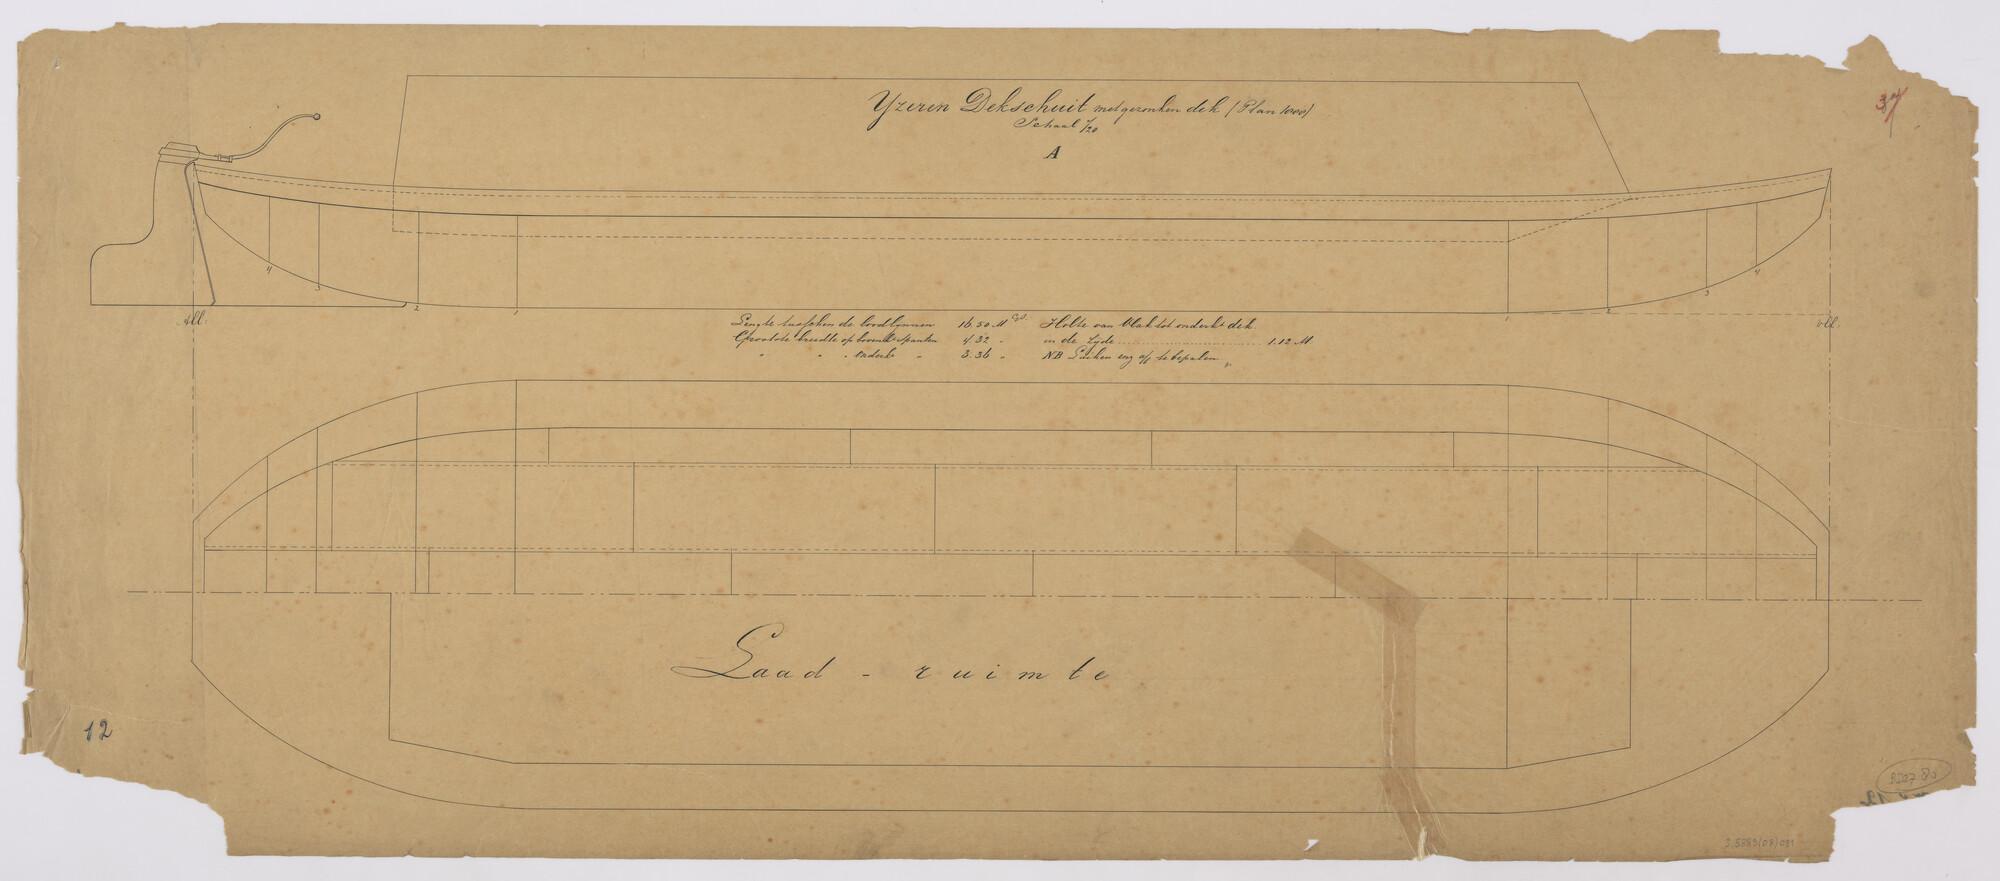 37
Yzeren Dekschuit met gezonken dek (Plan 1000)
Schaal 1/20
A
4 3 2 1 1 2 3 4
All: Vll:
Lengte tusschen de loodlynnen 16.50 M
Grootste breedte op bovenk. spanten 4.32 "
" " " onderk. " 3.36 "
Holte van Vlak tot onderk. dek
in de Zyde 1.12 M
NB Luiken enz o/s te bepalen
Laad - ruimte
12
3.5353(08)031